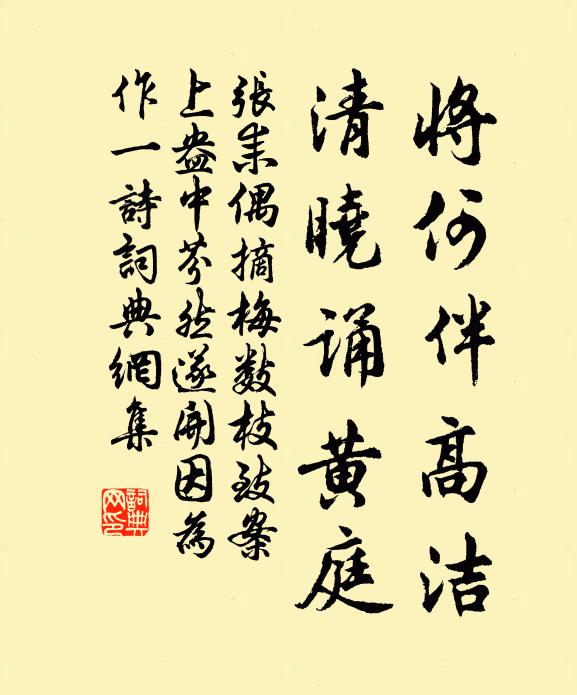 將何伴高洁
清曉誦黄庭
張耒偶摘梅數枝致案
上盎中芬然遂開因為
作一詩詞典網集
詞典网印